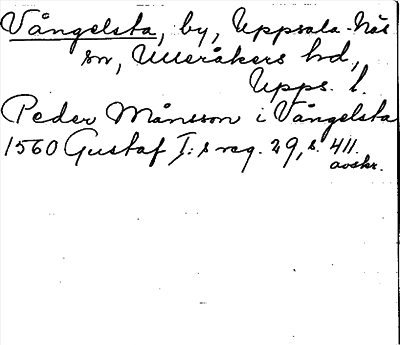 Vångelsta, by, Uppsala-Näs
sn, Ulleråkers hd,
Upps. l.
Peder Månsson i Vångelsta
1560 Gustaf I:s reg. 29, s. 411.
avskr.